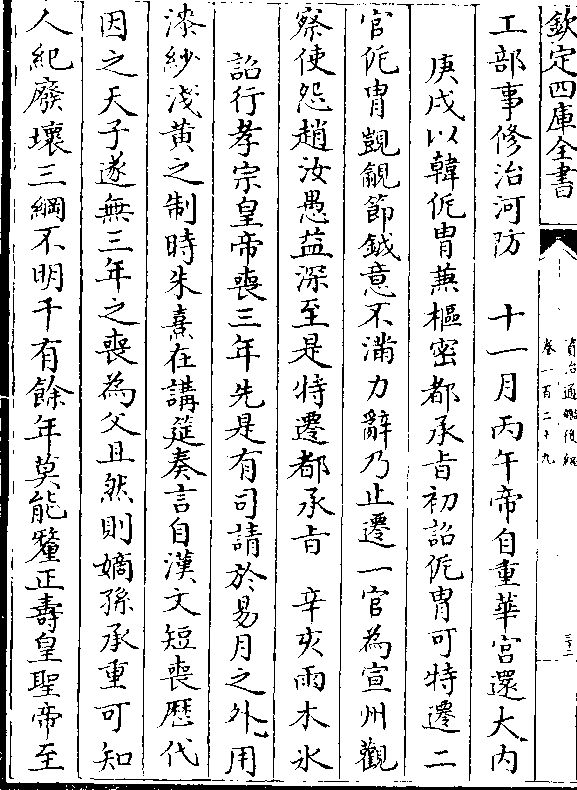 欽定四庫全書
資治通鑑後編
卷一百二十九
三十二
工部事修治河防　十一月丙午帝自重華宮還大内
庚戌以韓侂胄兼樞密都承㫖初詔侂胄可特遷二
官侂胄覬覦節鉞意不滿力辭乃止遷一官為宣州觀
察使怨趙汝愚益深至是特遷都承㫖　辛亥雨木冰
詔行孝宗皇帝喪三年先是有司請於易月之外用
漆紗淺黄之制時朱熹在講筵奏言自漢文短喪歴代
因之天子遂無三年之喪為父且然則嫡孫承重可知
人紀廢壞三綱不明千有餘年莫能釐正壽皇聖帝至